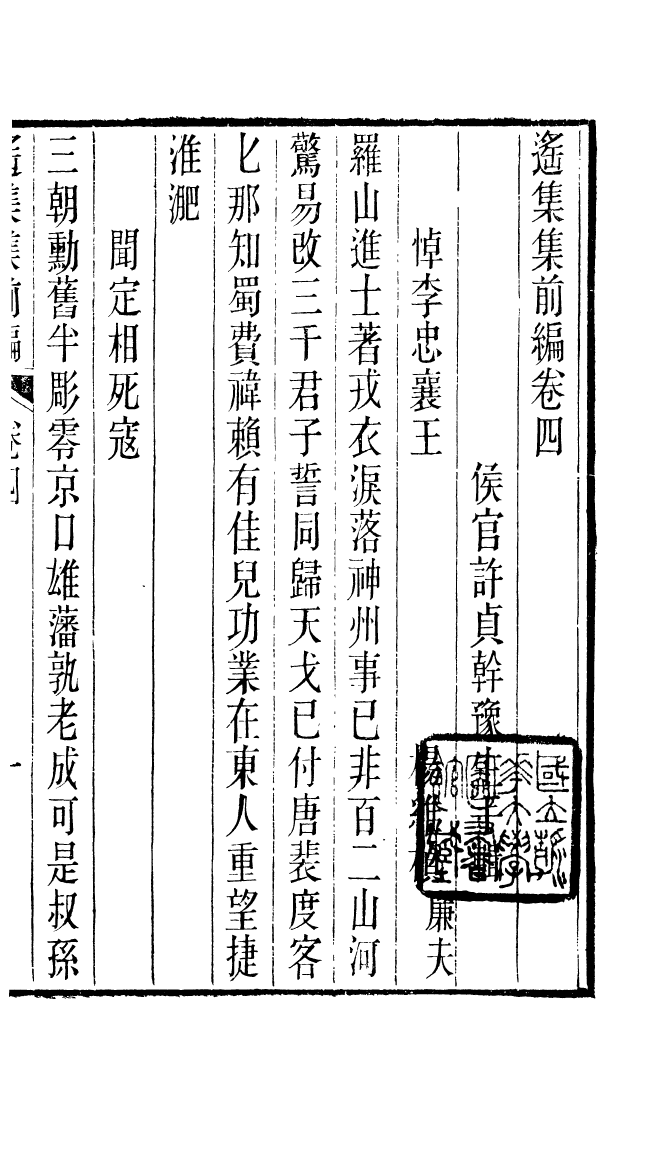 遙集集前編卷四
侯官許貞幹豫生
悼李忠襄王
楊維楨廉夫
羅山進士著戎衣淚落神州事已非百二山河
驚易改三千君子誓同歸天戈已付唐裴度客
匕那知蜀費禕賴有佳兒功業在東人重望捷
淮淝
聞定相死寇
三朝勳舊半彫零京口雄藩孰老成可是叔孫
遙集集前編
卷四
一